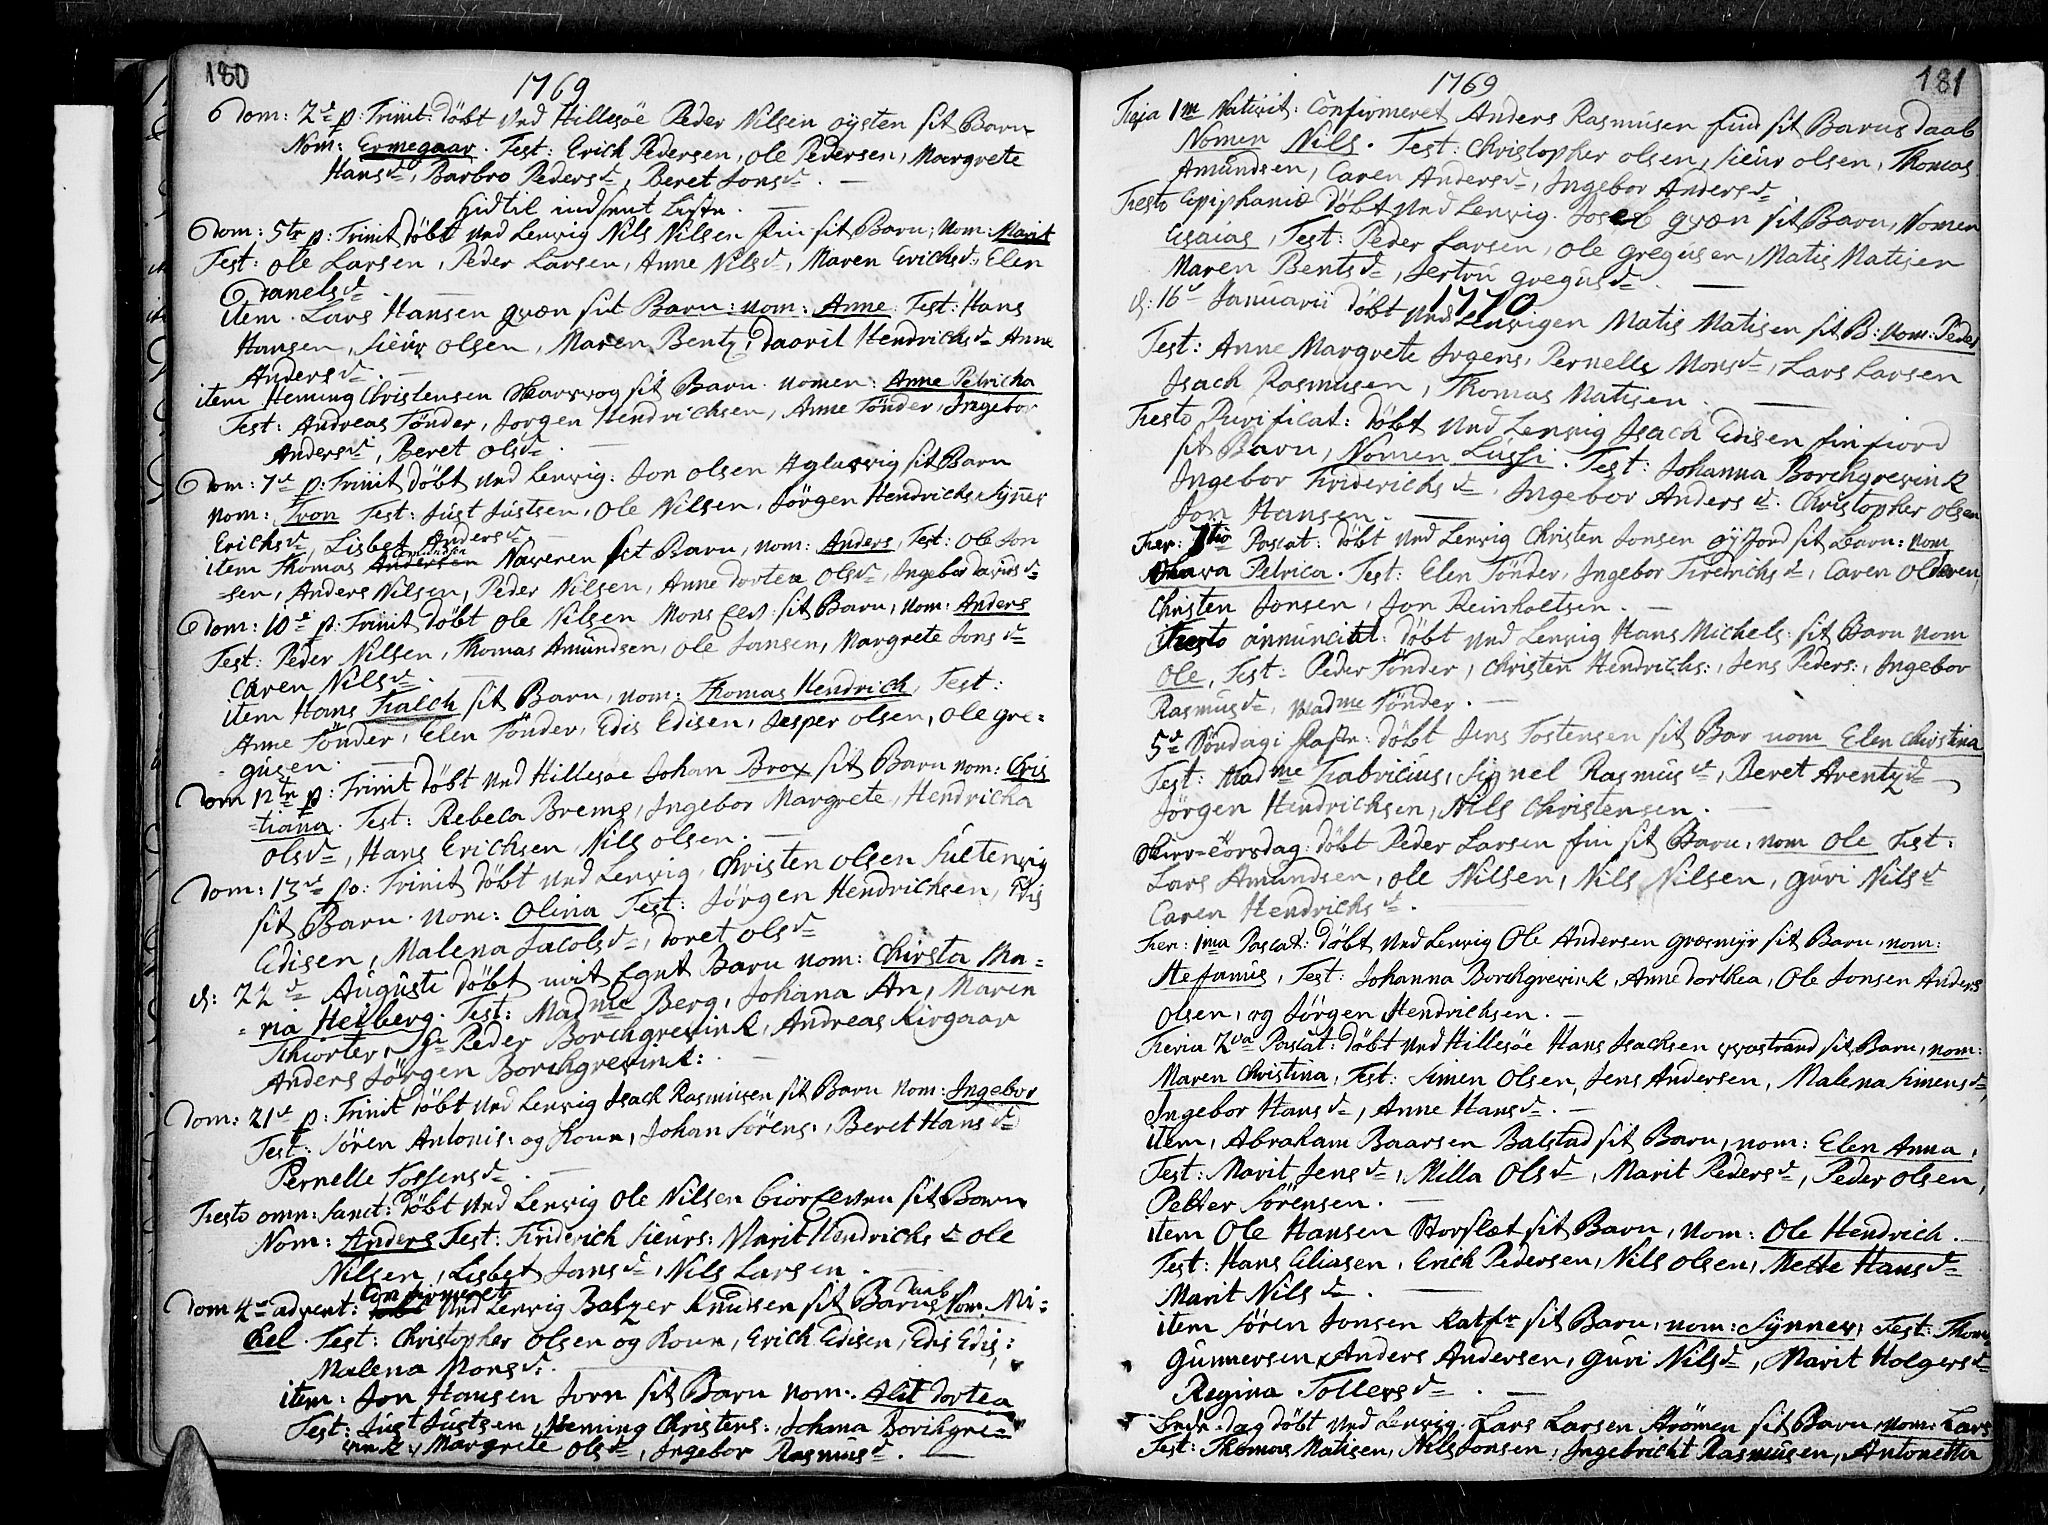 180
1769
Dom: 2de p: Trinit: döbt ved Hillesöe Peder Nilsen öysten sit Barn
Nom: Ermegaar. Test: Erich Pedersen, Ole Pedersen, Margrete
Hansd:, Barbro Pedersd:, Beret Jonsd:
hidtil indsent Liste.
Dom: 5te p: Trinit döbt ved Lenvig Nils Nilsen fin sit Barn, Nom: Marit
Test: Ole Larsen, Peder Larsen, Anne Nilsd:, Maren Erichsd:, Elen
Danelsd:
item Lars Hansen qvæn sit Barn: nom: Anne Test: Hans
Hansen, Siur Olsen, Maren Bentz, Daaril Hendrichsd: Anne
Andersd:
item Heming Christensen Skarsvog sit Barn. nomen: Anne Petricha
Test: Andreas Tönder, Jorgen Hendrichsen, Anne Tönder, Ingebor
Andersd:, Beret Olsd:
Dom: 7de p: Trinit döbt ved Lenvig: Jon Olsen Aglasvig sit Barn
nom: Tron Test: Just Justsen, Ole Nilsen, Jörgen Hendrichs: Synnev
Erichsd:, Lisbet Andersd:
item Thomas Andersen Amundsen Naveren sit Barn, nom: Anders, Test: Ole Jon
-sen, Anders Nilsen, Peder Nilsen, Anne Dortea Olsd:, Ingebor Davidsd:
Dom: 10de p: Trinit döbt Ole Nilsen Mons Eed: sit Barn, nom: Anders
Test: Peder Nilsen, Thomas Amundsen, Ole Jonsen, Margrete Jonsd:
Caren Nilsd:
item Hans Falch sit Barn, nom: Thomas Hendrich, Test:
Anne Tönder, Elen Tönder, Edis Edisen, Jesper Olsen, Ole Gre=
gusen.
Dom 12te p: Trinit döbt ved Hillesöe Johan Brox sit Barn nom: Chris
=tiana. Test: Rebeca Brems, Ingebor Margrete, Hendricha
Olsd:, Hans Erichsen, Nils Olsen.
Dom: 13de p: Trinit döbt ved Lenvig, Christen Olsen Sultenvig
sit Barn. nom: Olina Test: Jörgen Hendrichsen, Edis
Edisen, Malena Jacobsd:, Doret Olsd:
d: 22de Augusti döbt mit Egnt Barn nom: Chirsta Ma=
=ria Heiberg. Test: Madme Berg, Johana An, Maren
Schiorter, Sr Peder Borchgrevink, Andreas Kirgaar
Anders Jörgen Borchgrevink:
Dom: 21de p: Trinit döbt ved Lenvig Isach Rasmusen sit Barn nom: Ingebor
Test: Sören Antonis: og Kone, Johan Sörens:, Beret Hansd:
Pernelle Tollensd:
Festo omn: Sanct: Döbt ved Lenvig Ole Nilsen Giorlevnn sit Barn
Nom: Anders Test: Friderich Sieurs: Marit Hendrichsd: Ole
Nilsen, Lisbet Jonsd:, Nils Larsen.
Dom 4de advent: döbt Confirmeret ved Lenvig Balzer Knudsen sit Barns Daab Nom: Mi=
kel. Test: Christopher Olsen og Kone, Erich Edisen, Edis Edis:
Malena Monsd:
item: Jon Hansen Jorn sit Barn nom: Alit Dortea
Test: Just Justsen, Heming Christens:, Johana Borchgre=
vink, Margrete Olsd:, Ingebor Rasmusd:
181
1769
Feria 1ma Nativit: Confirmeret Anders Rasmusen fin sit Barns daab
Nomen Nils. Test: Christopher Olsen, Sieur Olsen, Thomas
Amundsen, Caren Andersd:, Ingebor Andersd:
Festo Epiphaniæ döbt ved Lenvig. Josef qvæn sit Barn, Nomen
Esaias, Test: Peder Larsen, Ole Gregusen, Matis Matisen
Maren Bentsd:, Jertru Gregusd:
1770
d: 16de Januarii Döbt ved Lenvigen Matis Matisen sit B: nom: Peder
Test: Anne Margrete Jrgens, Pernelle Monsd:, Lars Larsen
Isach Rasmusen, Thomas Matisen.
Festo Purificat: döbt ved Lenvig Isach Edisen finfiord
sit Barn, Nomen Lussi. Test: Johanna Borchgrevink
Ingebor Friderichsd:, Ingebor Andersd: Christopher Olsen
Jon Hansen.
Fer: 1tio Pascat: Döbt ved Lenvig Christen Jonsen Gyfjord sit Barn: nom
Petrica. Test: Elen Tönder, Ingebor Fredrichsd:, Caren
Christen Jonsen, Jon Reinholtsen.
Festo annunciat: döbt ved Lenvig Hans Michels: sit Barn nom
Ole, Test: Peder Tönder, Christen Hendrichs:, Jens Peders:, Ingebor
Rasmusd:, Madme Tönder.
5te Söndag i faste: döbt Jens Tostensen sit Bar nom Elen Christina
Test: Madme Fabricius, Signel Rasmusd:, Beret Arentzd:
Jörgen Hendrichsen, Nils Christensen.
Skier=törsdag: döbt Peder Larsen fin sit Barn, nom Ole Test:
Lars Amundsen, Ole Nilsen, Nils Nilsen, Guri Nilsd:
Caren Hendrichsd:
Fer: 1ma Pascat: döbt ved Lenvig Ole Andersen Græsmyr sit Barn, nom:
Stefanus, Test: Johanna Borchgrevink, Anne Dorthea, Ole Jonsen Anders
Olsen, og Jörgen Hendrichsen.
Feria 2da Pascat: Döbt ved Hillesöe Hans Isachsen vvastrand sit Barn, nom:
Maren Christina, Test: Simen Olsen, Jens Andersen, Malena Simensd:,
Ingebor Hansd:, Anne Hansd:
item, Abraham Baarsen Balstad sit Barn, nom: Elen Anna,
Test: Marit Jensd:, Milla Olsd:, Marit Pedersd:, Peder Olsen,
Petter Sörensen.
item Ole Hansen Storslet sit Barn, nom: Ole Hendrich.
Test: Hans Eliasen, Erich Pedersen, Nils Olsen, Mette Hansd:
Marit Nilsd:
item Sören Jonsen Ratfr sit Barn, nom: Synnev, Test: Thom
Gunnersen, Anders Andersen, Guri Nilsd:, Marit Holgersd:
Regina Tollersd:
Bede-dag döbt ved Lenvig. Lars Larsen Strömen sit Barn nom: Lars
Test: Thomas Matisen, Nils Jonsen, Ingebricht Rasmusen, Antonetta